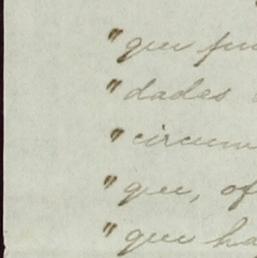 "que fu
"dades
"circum
"que, of
"que ha